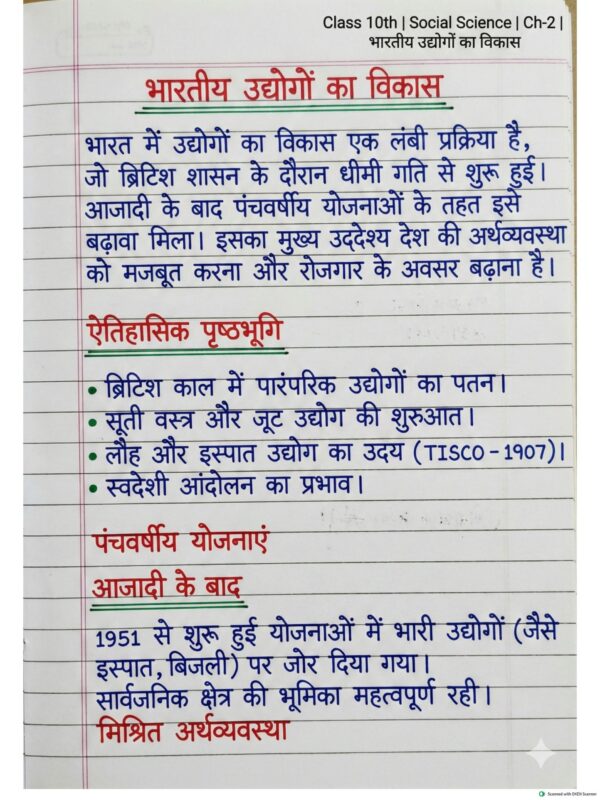 Class 10th | Social Science | Ch-2 |
भारतीय उद्योगों का विकास
भारतीय उद्योगों का विकास
भारत में उद्योगों का विकास एक लंबी प्रक्रिया है,
जो ब्रिटिश शासन के दौरान धीमी गति से शुरू हुई।
आजादी के बाद पंचवर्षीय योजनाओं के तहत इसे
बढ़ावा मिला। इसका मुख्य उद्देश्य देश की अर्थव्यवस्था
को मजबूत करना और रोजगार के अवसर बढ़ाना है।
ऐतिहासिक पृष्ठभूगि
• ब्रिटिश काल में पारंपरिक उद्योगों का पतन।
• सूती वस्त्र और जूट उद्योग की शुरुआत।
• लौह और इस्पात उद्योग का उदय (TISCO – 1907)।
• स्वदेशी आंदोलन का प्रभाव।
पंचवर्षीय योजनाएं
आजादी के बाद
1951 से शुरू हुई योजनाओं में भारी उद्योगों (जैसे
इस्पात, बिजली) पर जोर दिया गया।
सार्वजनिक क्षेत्र की भूमिका महत्वपूर्ण रही।
मिश्रित अर्थव्यवस्था
Scanned with OKEN Scanner